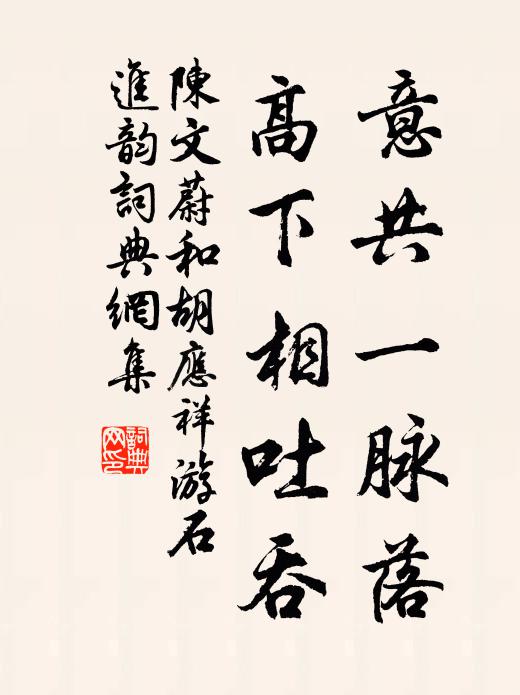 意共一脉落
高下相吐吞
陳文蔚和胡應祥游石
進韵詞典網集
詞典网印